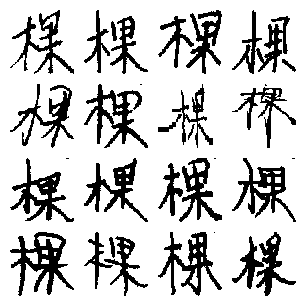 棵棵棵棵
棵棵棵棵
棵棵棵棵
棵棵棵棵